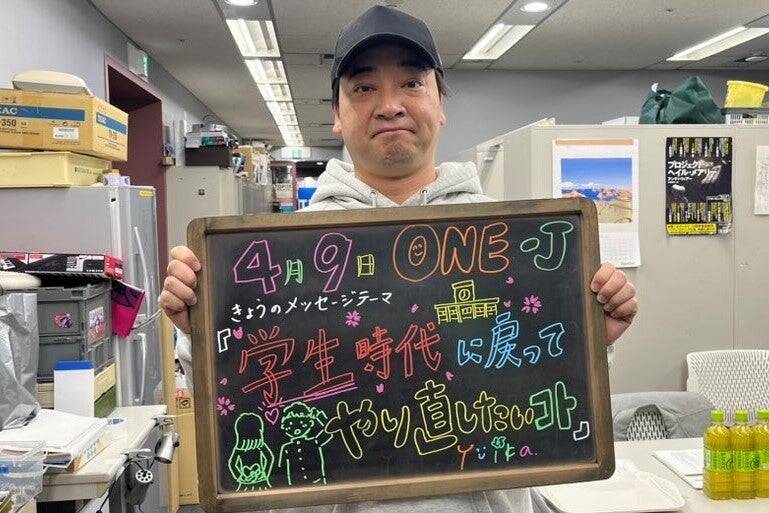 4月9日 ONE-J
きょうのメッセージテーマ
『学生時代に戻って
やり直したいコト』
Yuika.
TEAC
プロジェクト
ヘイル・メアリー